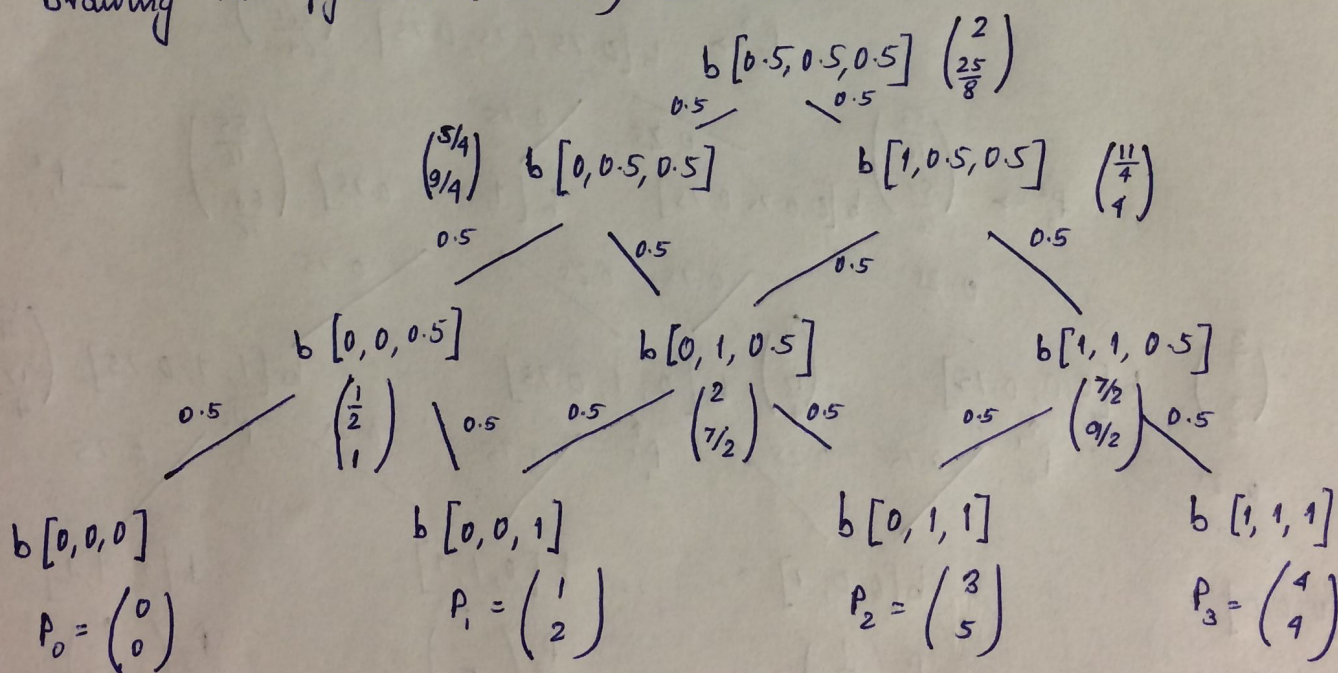 Drawing
b [0.5, 0.5, 0.5] (2 25/8)
0.5 0.5
(5/4 9/4) b [0, 0.5, 0.5] b [1, 0.5, 0.5] (11/4 4)
0.5 0.5 0.5 0.5
b [0, 0, 0.5] b [0, 1, 0.5] b [1, 1, 0.5]
(1/2 1) (2 7/2) (7/2 9/2)
0.5 0.5 0.5 0.5 0.5 0.5
b [0, 0, 0] b [0, 0, 1] b [0, 1, 1] b [1, 1, 1]
P₀ = (0 0) P₁ = (1 2) P₂ = (3 5) P₃ = (4 4)